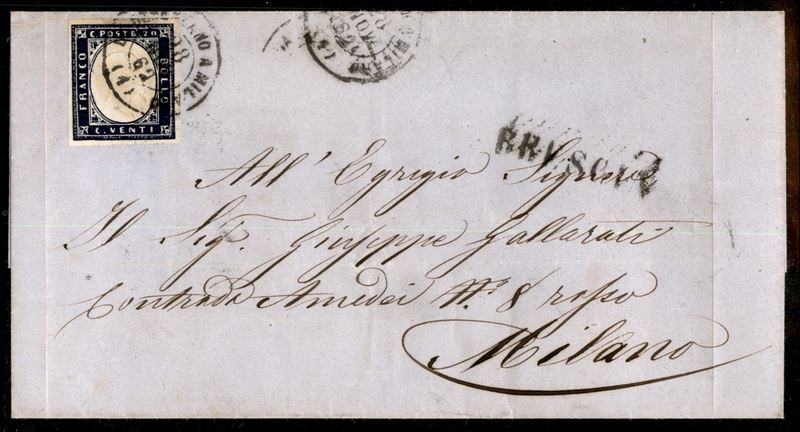 C. POSTE. 20
FRANCO
BOLLO
C. VENTI
A MILA
62
(4)
BRESCIA
All' Egregio Signore
Il Sig. Giuseppe Gallarati
Contrada Amedei N.º 8 rosso
Milano